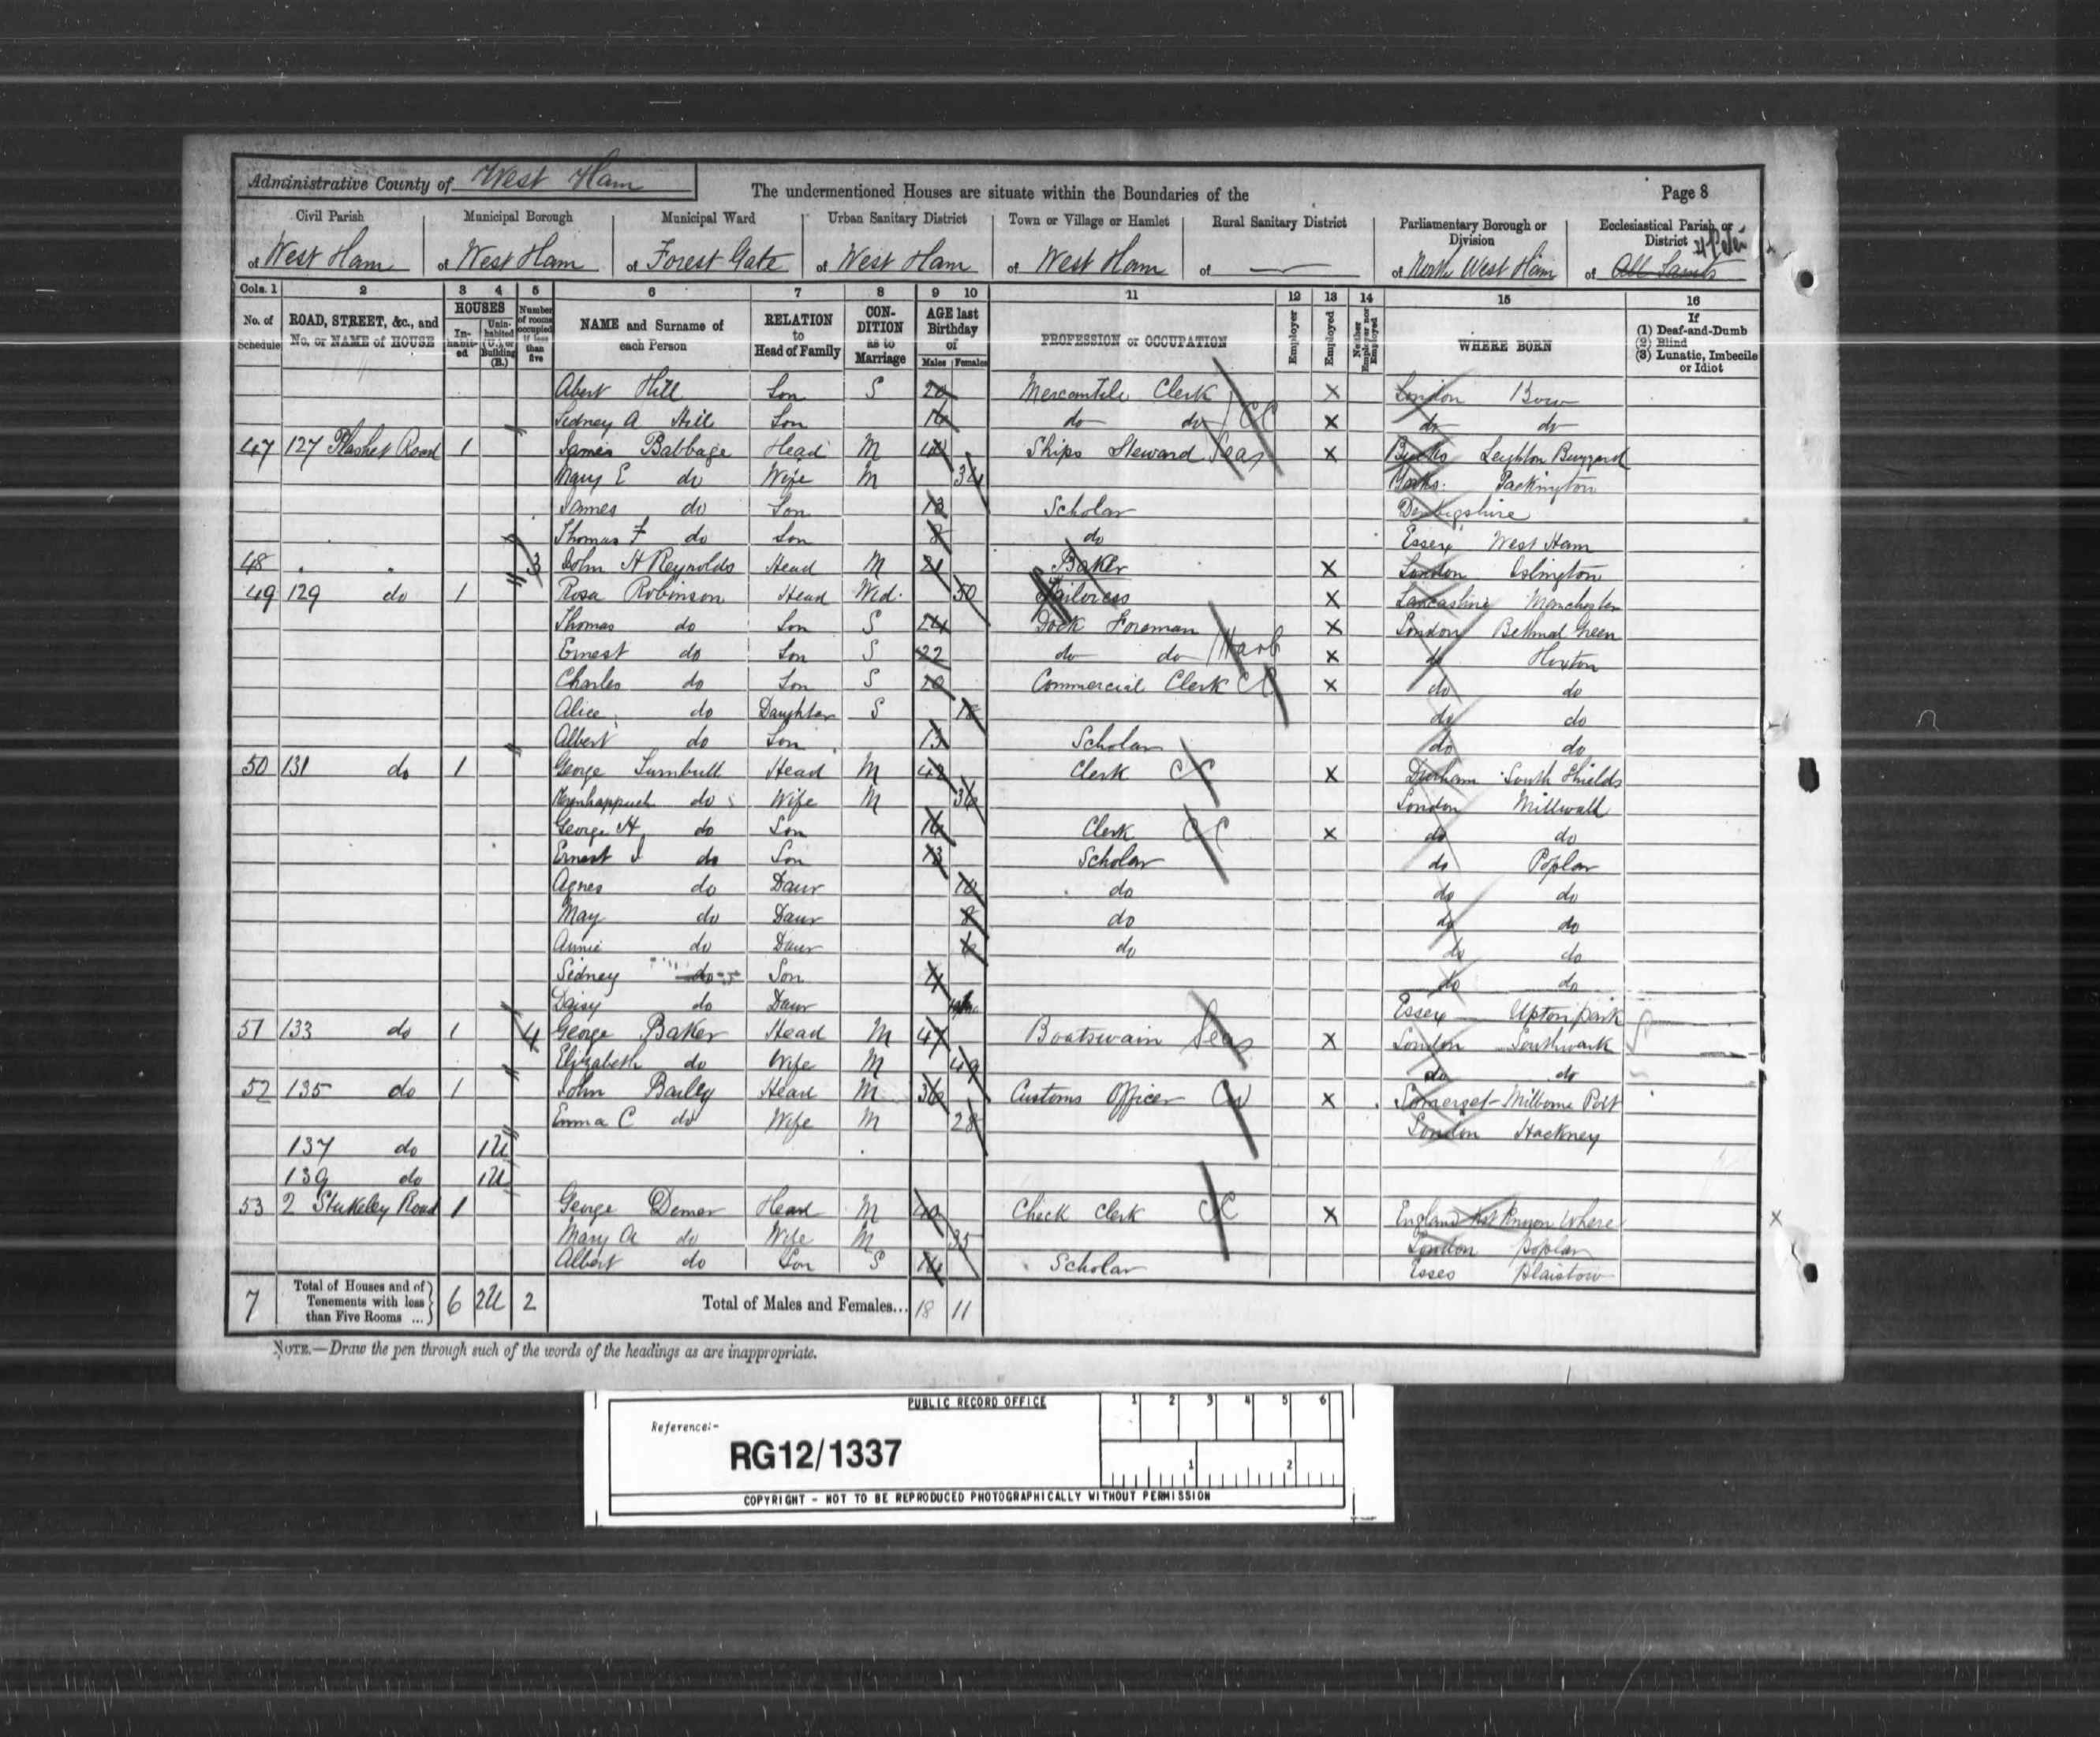 Administrative County of West Ham
The undermentioned Houses are situate within the Boundaries of the
Page 8
Civil Parish Municipal Borough Municipal Ward Urban Sanitary District Town or Village or Hamlet Rural Sanitary District Parliamentary Borough or Division Ecclesiastical Parish or District
of West Ham of West Ham of Forest Gate of West Ham of West Ham of of North West Ham of All Saints
Cols. 1 2 3 4 5 6 7 8 9 10 11 12 13 14 15 16
No. of Schedule ROAD, STREET, &c., and No. or NAME of HOUSE HOUSES In-habit-ed Unin-habited (U.), or Building (B.) Number of rooms occupied if less than five NAME and Surname of each Person RELATION to Head of Family CON-DITION as to Marriage AGE last Birthday of Males Females PROFESSION or OCCUPATION Employer Employed Neither Employer nor Employed WHERE BORN If (1) Deaf-and-Dumb (2) Blind (3) Lunatic, Imbecile or Idiot
Abert Hill Son S 20 Mercantile Clerk X London Bow
Sidney A Hill Son 16 do do CC X do do
47 127 Plashet Road 1 James Babbage Head M Ships Steward Seas X Bucks Leighton Buzzard
Mary E do Wife M 34 Packington
James do Son 13 Scholar Denbigshire
Thomas F do Son 8 do Essex West Ham
48 3 John H Reynolds Head M 21 Baker X London Islington
49 129 do 1 Rosa Robinson Head Wid. 50 Tailoress X Lancashire Manchester
Thomas do Son S 24 Dock Foreman X London Bethnal Green
Ernest do Son S 22 do do Harb X do Hoxton
Charles do Son S 20 Commercial Clerk CC X do do
Alice do Daughter S 18 do do
Albert do Son 13 Scholar do do
50 131 do 1 George Turnbull Head M 42 Clerk CC X Durham South Shields
do Wife M 36 London Millwall
George H do Son 16 Clerk CC X do do
Ernest J do Son 13 Scholar do Poplar
Agnes do Daur 10 do do do
May do Daur 8 do do do
Annie do Daur 6 do do do
Sidney do Son 4 do do
Daisy do Daur Essex Upton park
51 133 do 1 4 George Baker Head M 47 Boatswain Seas X London Southwark
Elizabeth do Wife M 49 do do
52 135 do 1 John Bailey Head M 36 Customs Officer X Somerset Milborne Port
Emma C do Wife M 28 London Hackney
137 do 1U
139 do 1U
53 2 Stukeley Road 1 George Demer Head M 40 Check Clerk CC X England Not Known Where X
Mary A do Wife M 35 London Poplar
Albert do Son S 14 Scholar Essex Plaistow
7 Total of Houses and of Tenements with less than Five Rooms ... 6 2U 2 Total of Males and Females... 18 11
NOTE.—Draw the pen through such of the words of the headings as are inappropriate.
PUBLIC RECORD OFFICE 1 2 3 4 5 6
Reference:-
RG12/1337
1 2
COPYRIGHT - NOT TO BE REPRODUCED PHOTOGRAPHICALLY WITHOUT PERMISSION